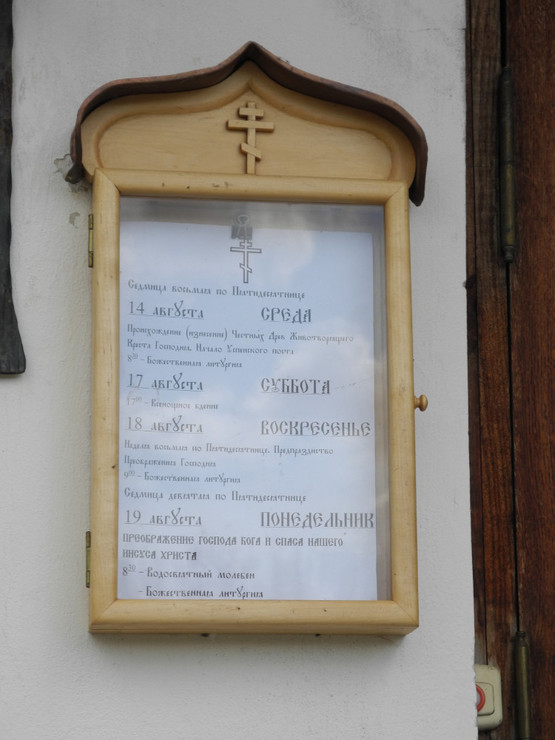 Седмица восьмая по Пятидесятнице
14 августа СРЕДА
Происхождение (изнесение) Честных Древ Животворящего
Креста Господня. Начало Успенского поста
8:30 - Божественная литургия
17 августа СУББОТА
17:00 - Всенощное бдение
18 августа ВОСКРЕСЕНЬЕ
Неделя восьмая по Пятидесятнице. Предпразднство
Преображения Господня
9:00 - Божественная литургия
Седмица девятая по Пятидесятнице
19 августа ПОНЕДЕЛЬНИК
ПРЕОБРАЖЕНИЕ ГОСПОДА БОГА И СПАСА НАШЕГО
ИИСУСА ХРИСТА
8:30 - Водосвятный молебен
- Божественная литургия